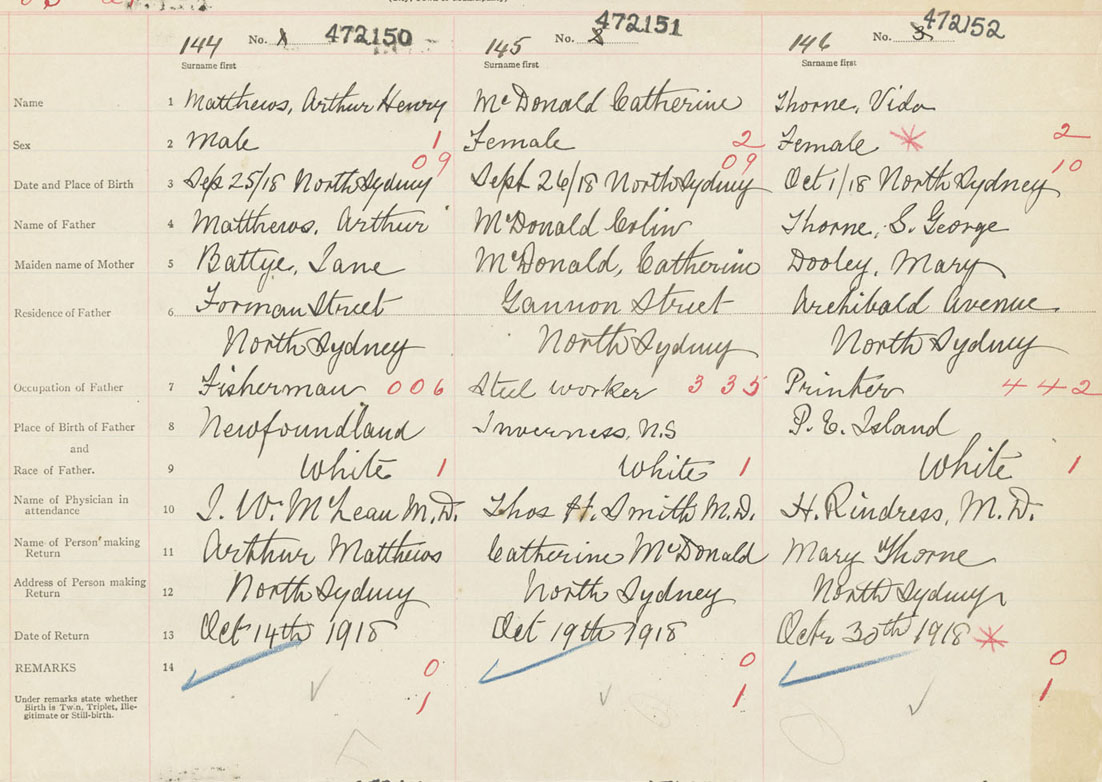 144 No. 1 472150 145 No. 2 472151 146 No. 3 472152
Surname first Surname first Surname first
Name 1 Matthews, Arthur Henry McDonald Catherine Thorne, Vida
Sex 2 Male 1 Female 2 Female * 2
09 09 10
Date and Place of Birth 3 Sep 25/18 North Sydney Sept 26/18 North Sydney Oct 1/18 North Sydney
Name of Father 4 Matthews, Arthur McDonald Colin Thorne, S. George
Maiden name of Mother 5 Battye, Jane McDonald, Catherine Dooley, Mary
Residence of Father 6 Forman Street Gannon Street Archibald Avenue
North Sydney North Sydney North Sydney
Occupation of Father 7 Fisherman 006 Steel worker 335 Printer 442
Place of Birth of Father 8 Newfoundland Inverness, N.S P.E. Island
and
Race of Father. 9 White 1 White 1 White 1
Name of Physician in
attendance 10 J. W. McLean M.D. Thos H. Smith M.D. H. Rindress, M.D.
Name of Person making
Return 11 Arthur Matthews Catherine McDonald Mary Thorne
Address of Person making
Return 12 North Sydney North Sydney North Sydney
Date of Return 13 Oct 14th 1918 Oct 19th 1918 Octr 30th 1918 *
REMARKS 14 0 0 0
Under remarks state whether
Birth is Twin, Triplet, Ille-
gitimate or Still-birth. 1 1 1